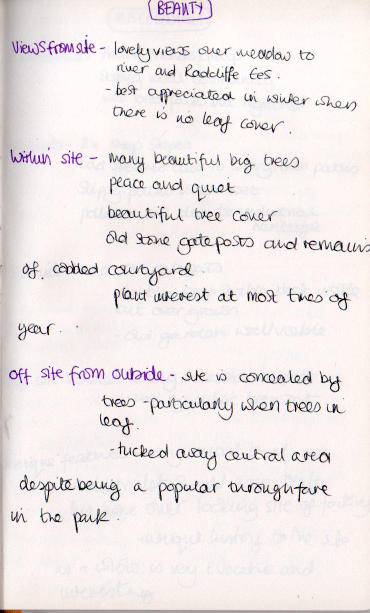 BEAUTY
Views from site - lovely views over meadow to
river and Radcliffe Ees.
- best appreciated in winter when
there is no leaf cover.
Within site - many beautiful big trees
peace and quiet
beautiful tree cover
old stone gateposts and remains
of cobbled courtyard
plant interest at most times of
year.
Off site from outside - site is concealed by
trees - particularly when trees in
leaf.
- tucked away central area
despite being a popular throughfare
in the park.